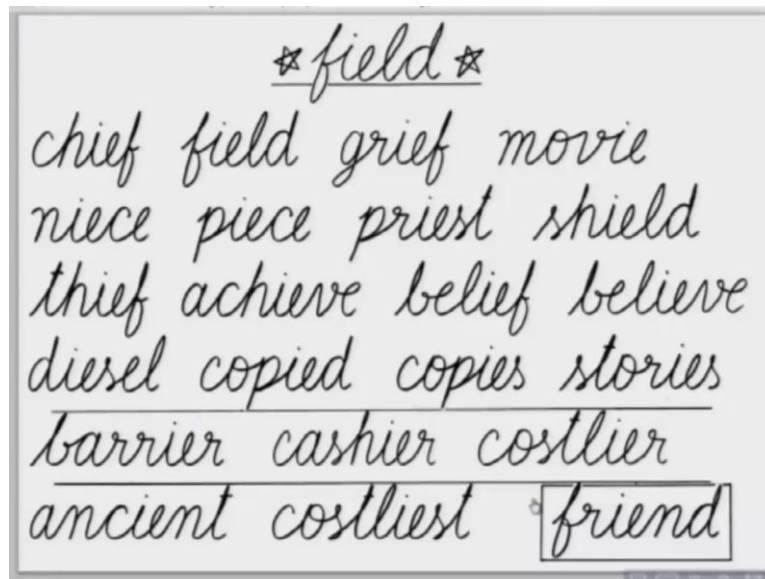 ☆ field ☆
chief field grief movie
niece piece priest shield
thief achieve belief believe
diesel copied copies stories
barrier cashier costlier
ancient costliest friend